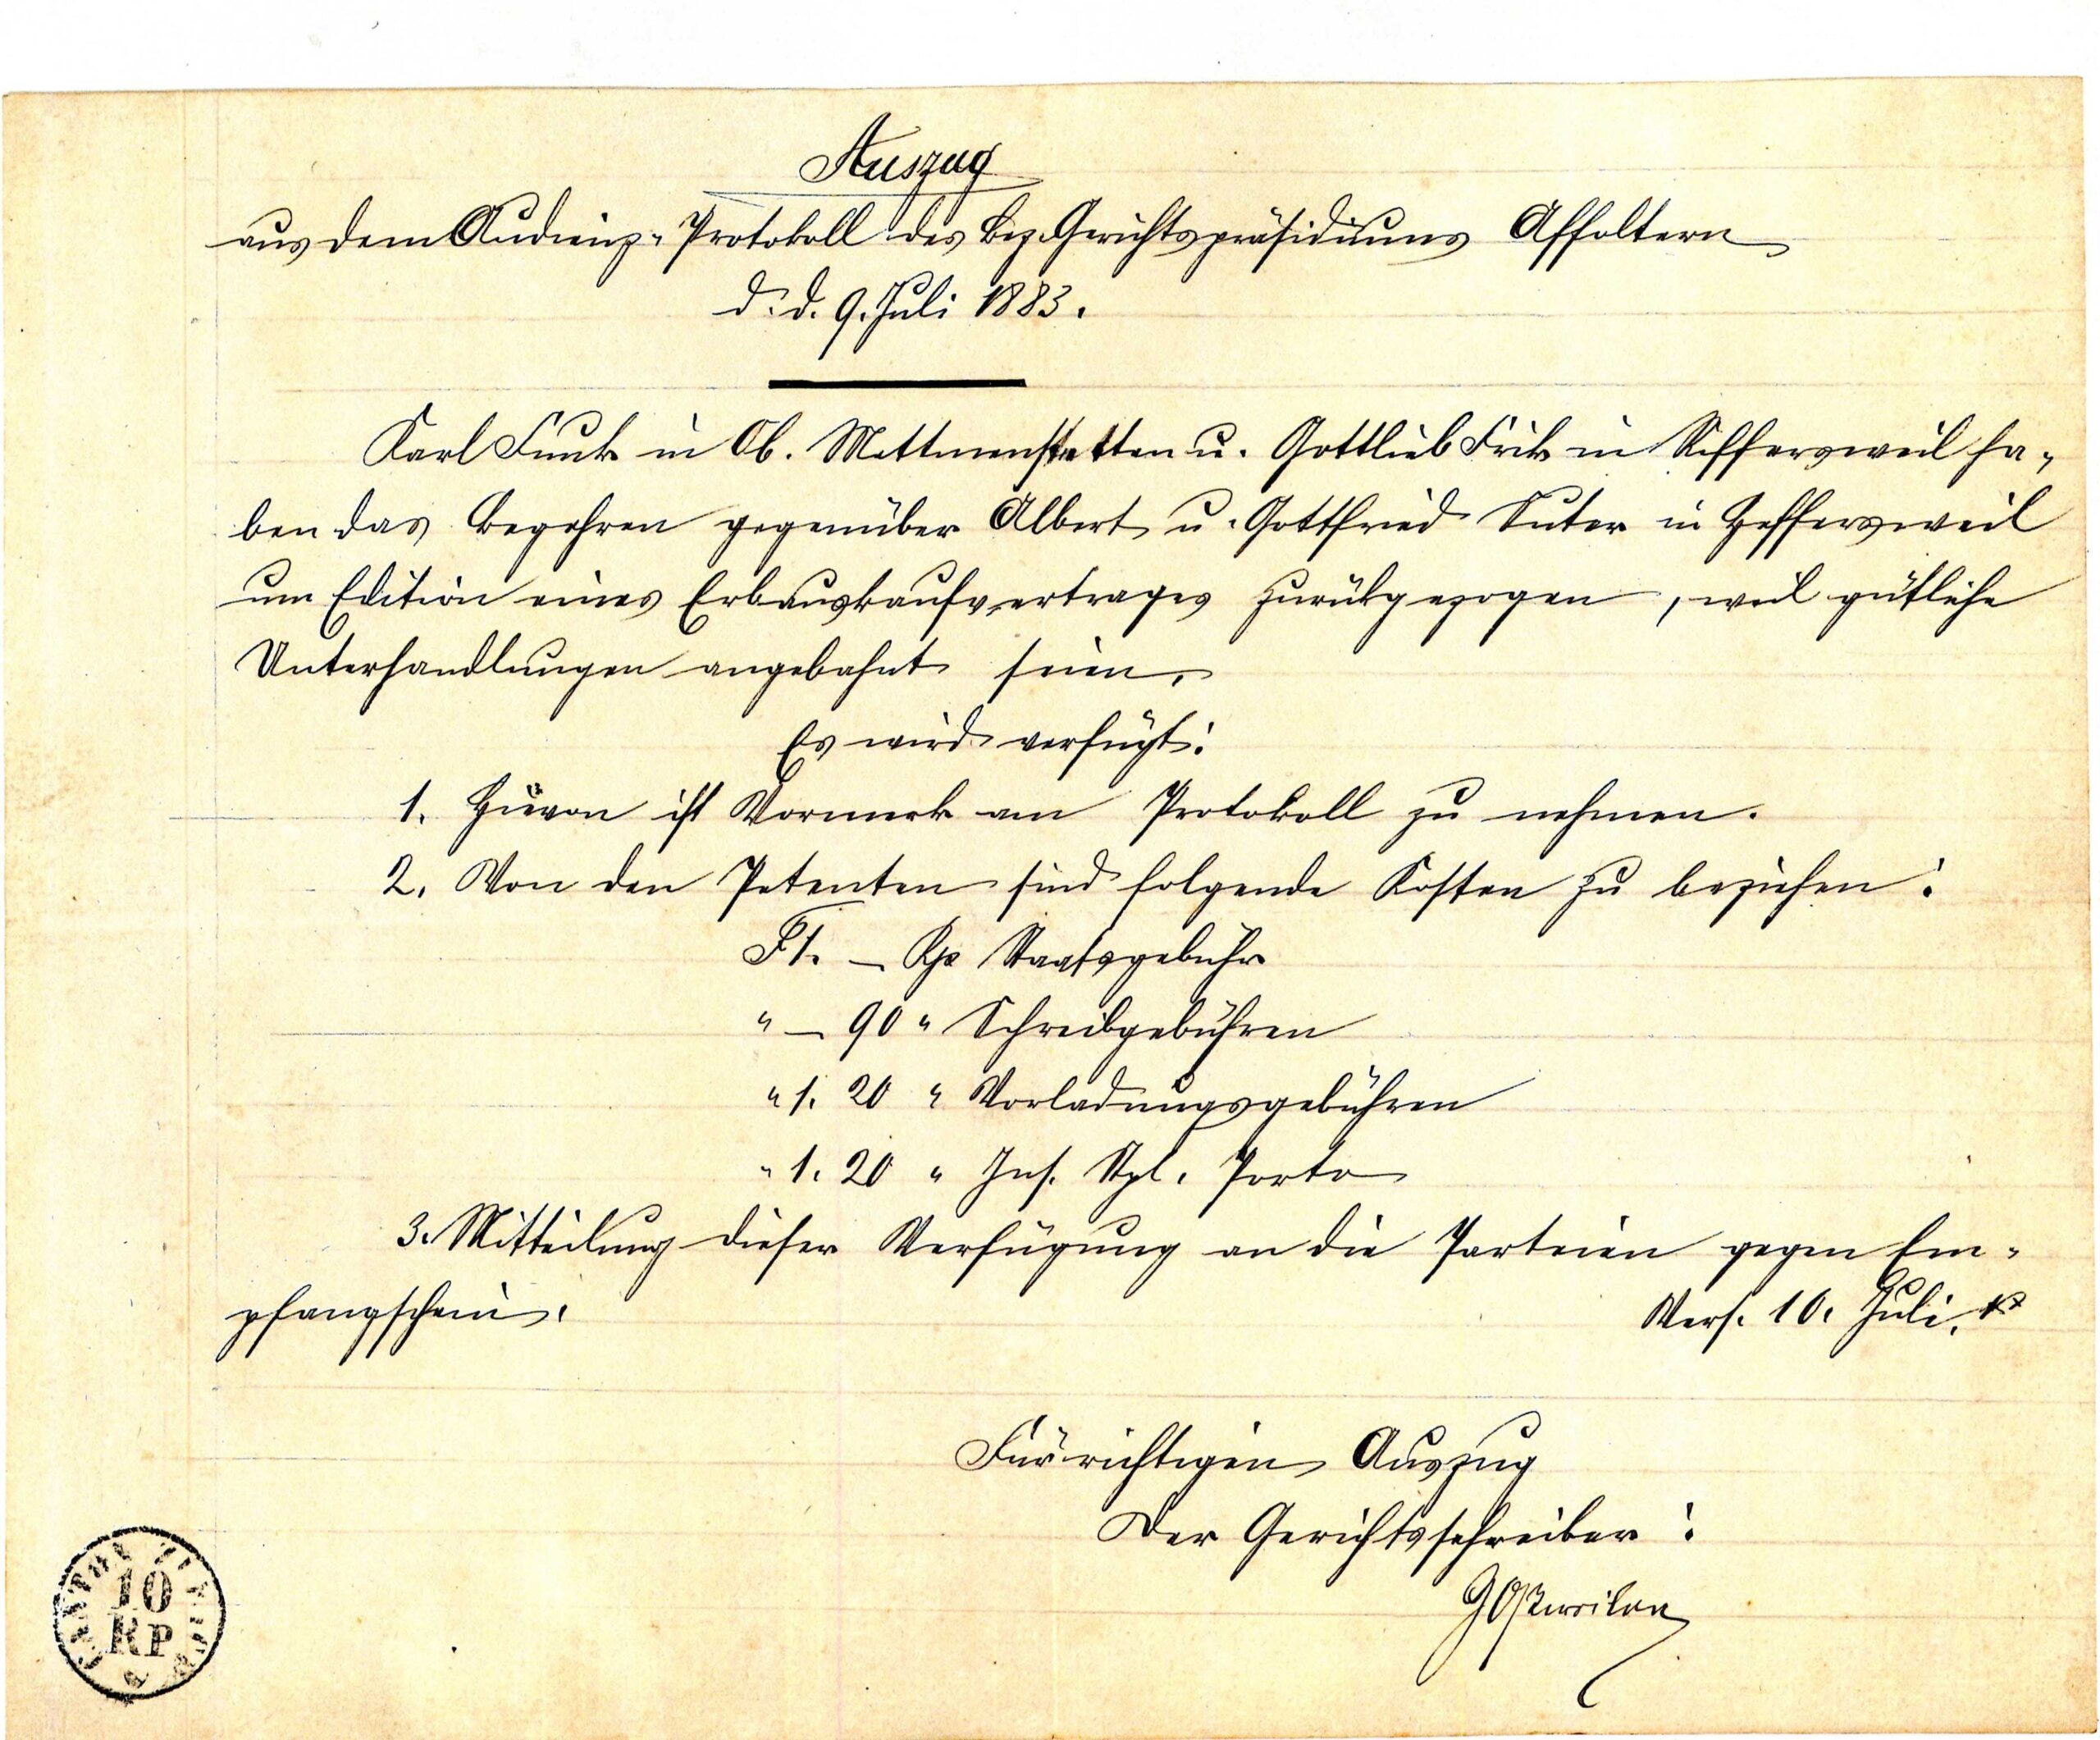 Auszug
aus dem Audienz-Protokoll des Bez. Gerichtspräsidiums Affoltern
d. d. 9. Juli 1883.
Karl Funk in Ob. Mettmenstetten u. Gottlieb Frik in Riffersweil ha-
ben das Begehren gegenüber Albert u. Gottfried Suter in Heffersweil
um Edition eines Erbauskaufvertrages zurükgezogen, weil gütliche
Unterhandlungen angebahnt seien.
Es wird verfügt:
1. Hievon ist Vormerk am Protokoll zu nehmen.
2. Von den Petenten sind folgende Kosten zu beziehen:
F 1. – Rp Staatsgebühr
" – 90 " Schreibgebühren
" 1. 20 " Vorladungsgebühren
" 1. 20 " Ins. Stpl. Porto
3. Mitteilung dieser Verfügung an die Parteien gegen Em-
pfangschein.
Vers. 10. Juli.
Für richtigen Auszug
Der Gerichtsschreiber:
CANTON ZÜRICH
10
RP